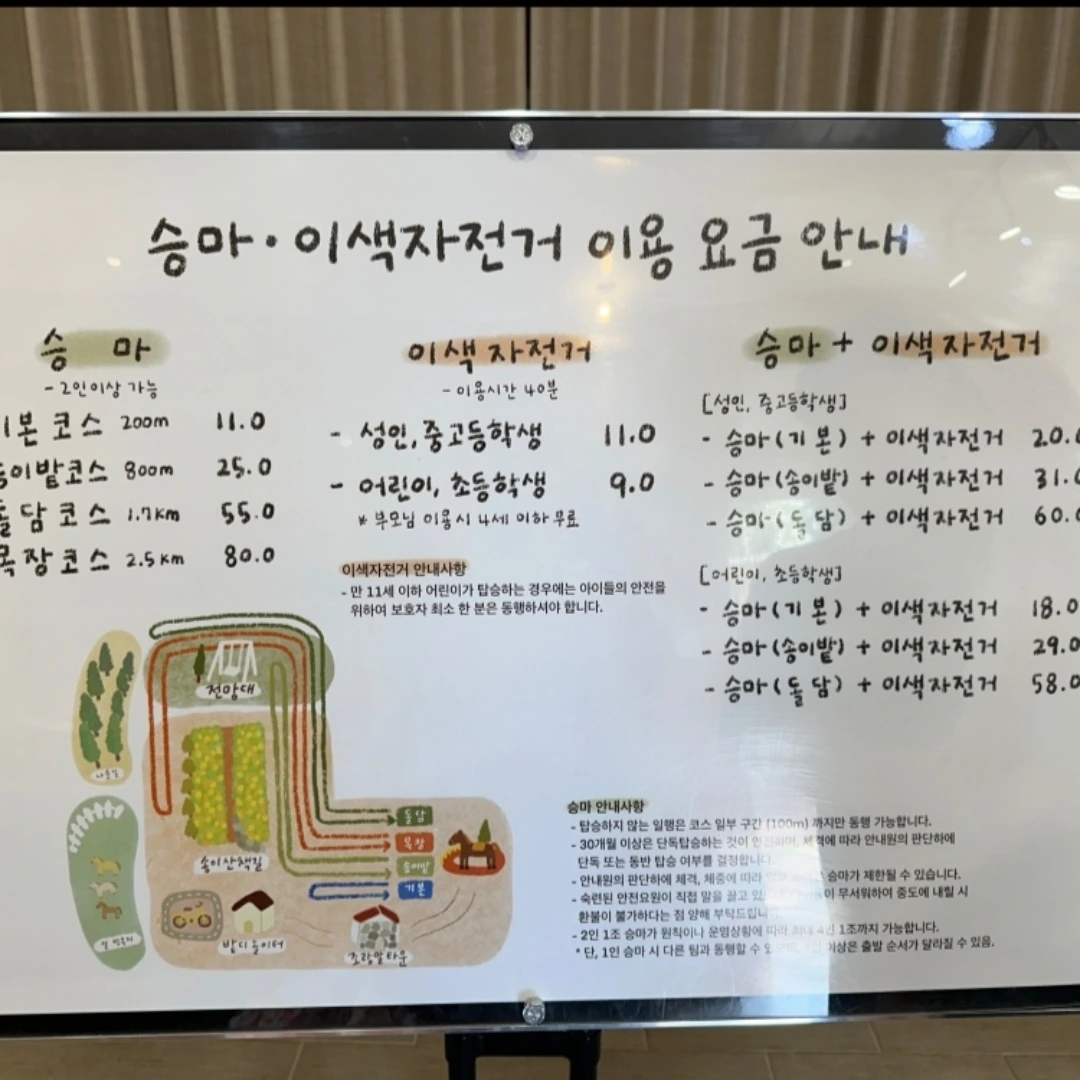 승마·이색자전거 이용 요금 안내
승 마
- 2인이상 가능
기본 코스 200m 11.0
송이밭코스 800m 25.0
돌담코스 1.7km 55.0
목장코스 2.5km 80.0
이색 자전거
- 이용시간 40분
- 성인, 중고등학생 11.0
- 어린이, 초등학생 9.0
* 부모님 이용시 4세 이하 무료
이색자전거 안내사항
- 만 11세 이하 어린이가 탑승하는 경우에는 아이들의 안전을
위하여 보호자 최소 한 분은 동행하셔야 합니다.
승마 + 이색자전거
[성인, 중고등학생]
- 승마(기 본) + 이색자전거 20.0
- 승마(송이밭) + 이색자전거 31.0
- 승마(돌 담) + 이색자전거 60.0
[어린이, 초등학생]
- 승마(기 본) + 이색자전거 18.0
- 승마(송이밭) + 이색자전거 29.0
- 승마(돌 담) + 이색자전거 58.0
전망대
돌담
목장
송이밭
기본
송이산책길
밭디놀이터
조랑말타운
승마 안내사항
- 탑승하지 않는 일행은 코스 일부 구간 (100m) 까지만 동행 가능합니다.
- 30개월 이상은 단독탑승하는 것이 체격에 따라 안내원의 판단하에
단독 또는 동반 탑승 여부를 결정합니다.
- 안내원의 판단하에 체격, 체중에 따라 승마가 제한될 수 있습니다.
- 숙련된 안전요원이 직접 말을 끌고 무서워하여 중도에 내릴 시
환불이 불가하다는 점 양해 부탁드립니다.
- 2인 1조 승마가 원칙이나 운영상황에 따라 최대 4인 1조까지 가능합니다.
* 단, 1인 승마 시 다른 팀과 동행할 수 이상은 출발 순서가 달라질 수 있음.